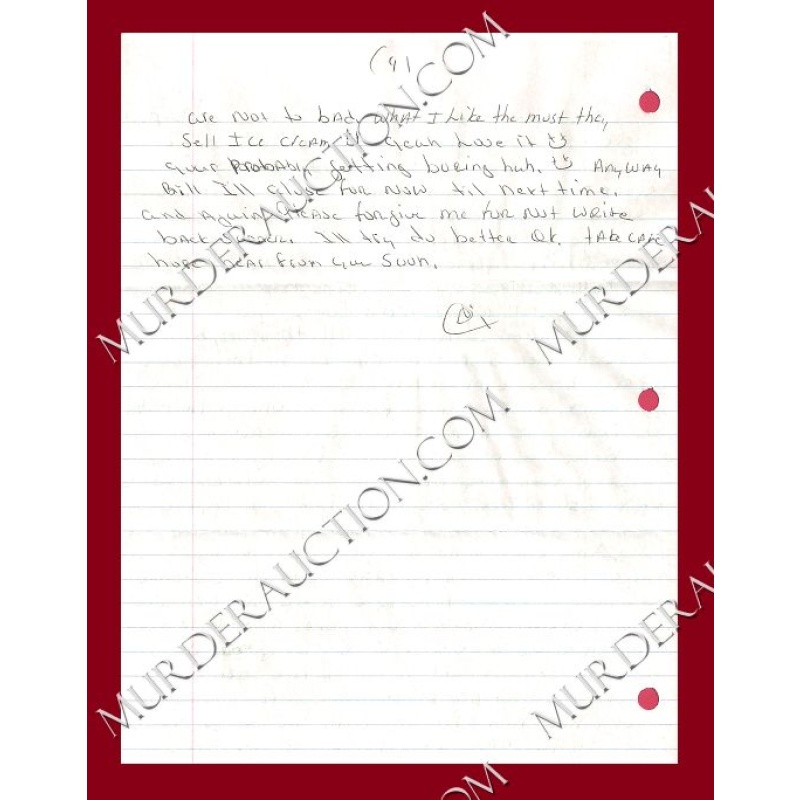 (4)
are not to bad, what I like the must they
Sell Ice cream, yeah Love it
your probably getting boring huh. Anyway
Bill I'll close for now til next time.
and Again Please forgive me for not write
back. I'll try do better Ok. take care
hope hear from you Soon.
MURDERAUCTION.COM
MURDERAUCTION.COM
MURDERAUCTION.COM
MURDERAUCTION.COM